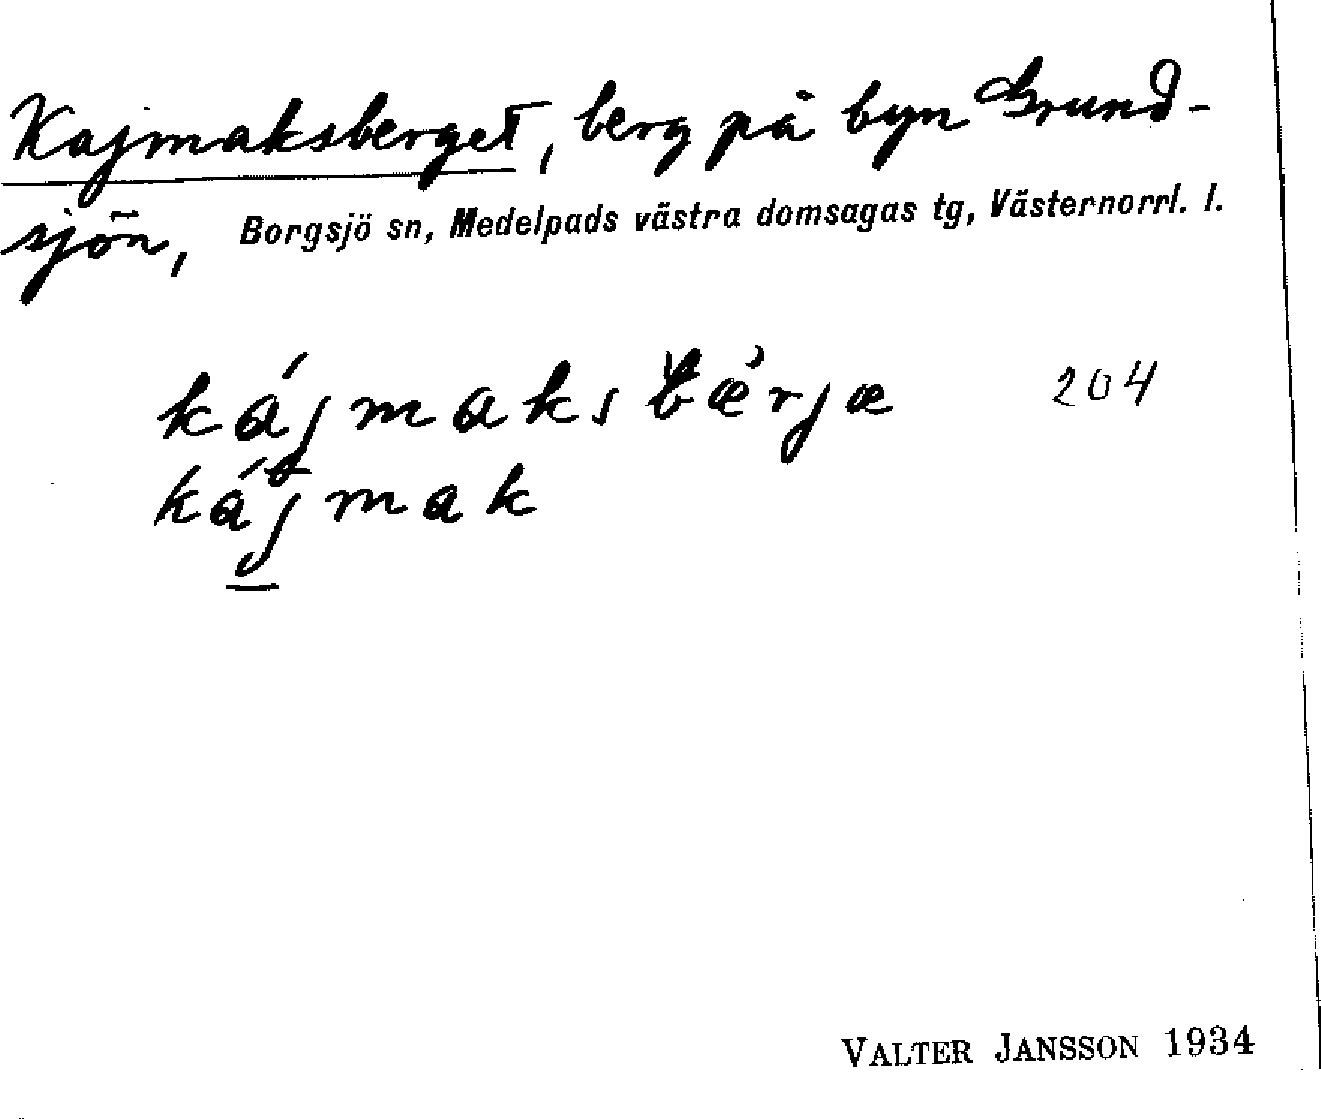 Kajmaksberget, berg på byn Grund-
sjön, Borgsjö sn, Medelpads västra domsagas tg, Västernorrl. l.
kájmaksbærjæ 204
kájmak
VALTER JANSSON 1934